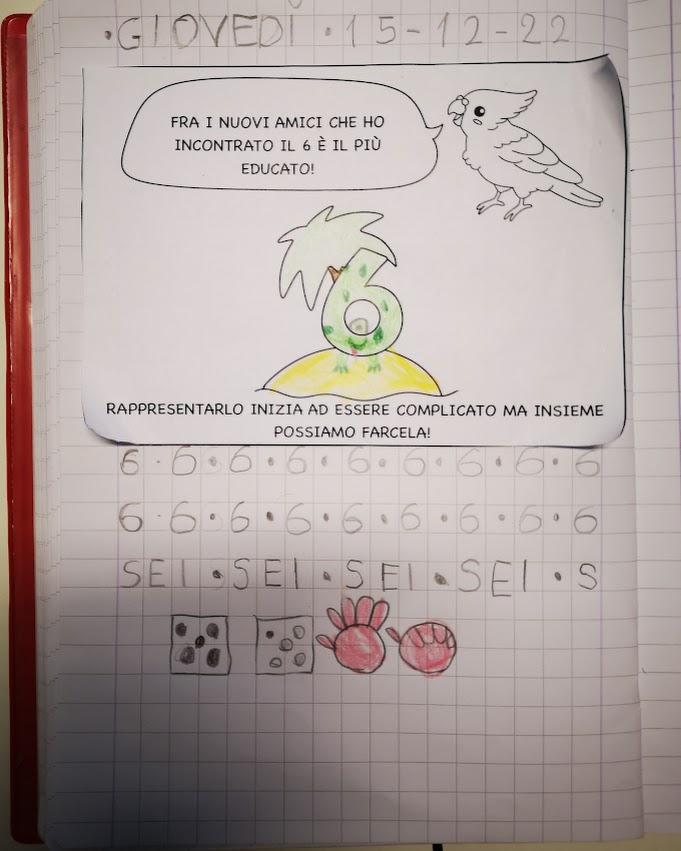 ·GIOVEDÌ·15-12-22
FRA I NUOVI AMICI CHE HO
INCONTRATO IL 6 È IL PIÙ
EDUCATO!
6
RAPPRESENTARLO INIZIA AD ESSERE COMPLICATO MA INSIEME
POSSIAMO FARCELA!
6·6·6·6·6·6·6·6·6
6·6·6·6·6·6·6·6·6
SEI·SEI·SEI·SEI·S